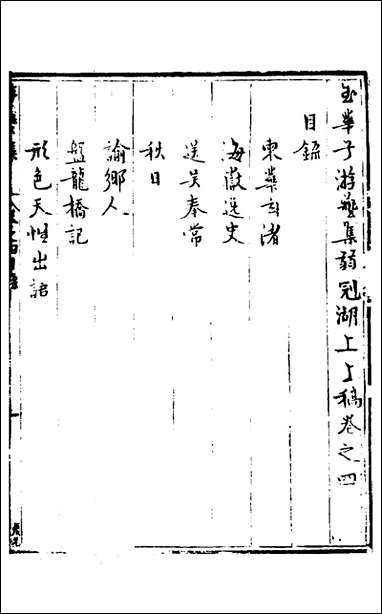 玉華子游藝集弱冠湖上上稿卷之四
目錄
東華玄渚
海嶽逸史
送吴奉常
秋日
諭鄉人
盤龍橋記
形色天性出語